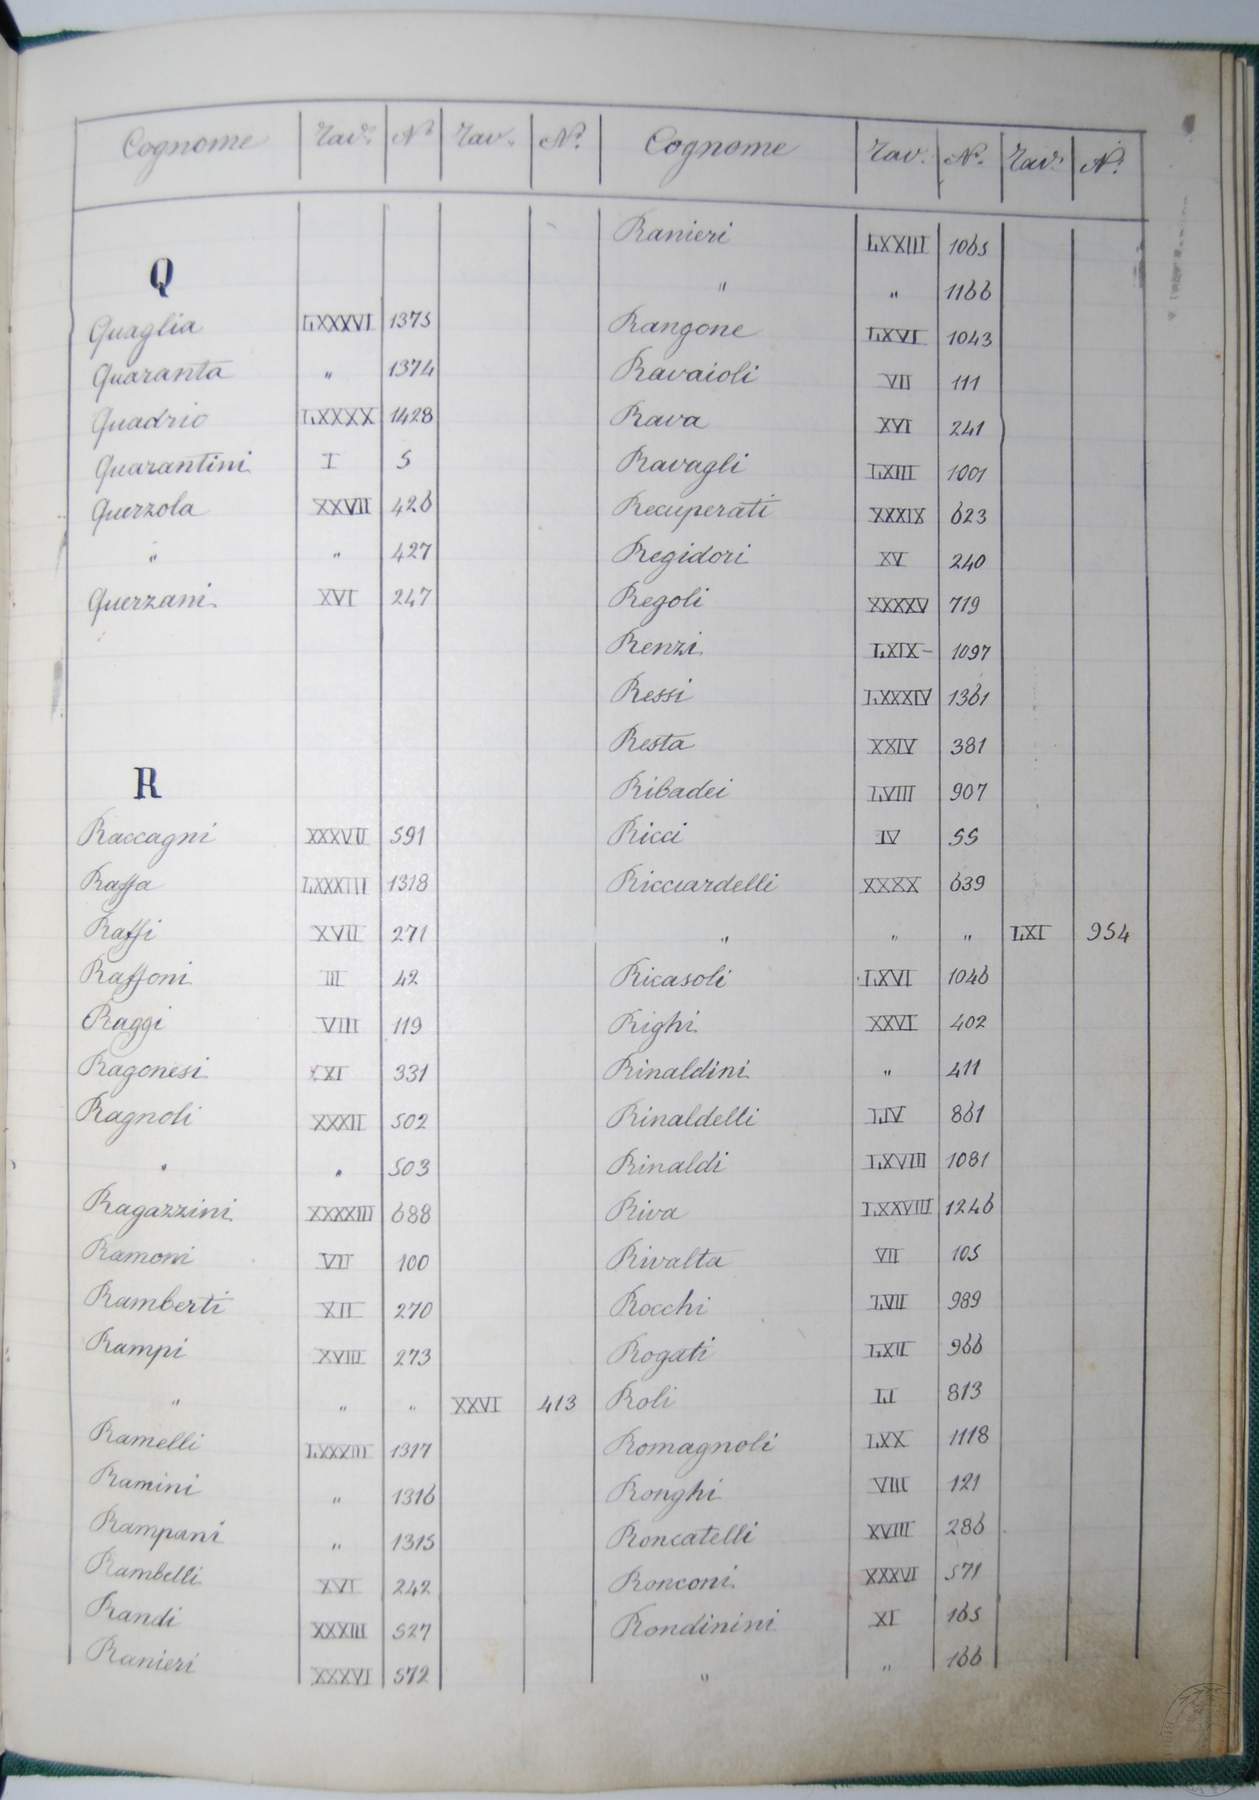 Cognome Tav. N.º Tav. N.º Cognome Tav. N.º Tav. N.º
Q
Quaglia LXXXVI 1375
Quaranta " 1374
Quadrio LXXXX 1428
Quarantini I 5
Querzola XXVII 426
" " 427
Querzani XVI 247
R
Raccagni XXXVII 591
Raffa LXXXIII 1318
Raffi XVII 271
Raffoni III 42
Raggi VIII 119
Ragonesi XXI 331
Ragnoli XXXII 502
" " 503
Ragazzini XXXXIII 688
Ramoni VII 100
Ramberti XII 270
Rampi XVIII 273
" " " XXVI 413
Ramelli LXXXIII 1317
Ramini " 1316
Rampani " 1315
Rambelli XVI 242
Randi XXXIII 527
Ranieri XXXVI 572
Ranieri LXXIII 1065
" " 1166
Rangone LXVI 1043
Ravaioli VII 111
Rava XVI 241
Ravagli LXIII 1001
Recuperati XXXIX 623
Regidori XV 240
Regoli XXXXV 719
Renzi LXIX 1097
Ressi LXXXIV 1361
Resta XXIV 381
Ribadei LVIII 907
Ricci IV 55
Ricciardelli XXXX 639
" " " LXI 954
Ricasoli LXVI 1046
Righi XXVI 402
Rinaldini " 411
Rinaldelli LIV 861
Rinaldi LXVIII 1081
Riva LXXVIII 1246
Rivalta VII 105
Rocchi LVII 989
Rogati LXII 966
Roli LI 813
Romagnoli LXX 1118
Ronghi VIII 121
Roncatelli XVIII 286
Ronconi XXXVI 571
Rondinini XI 165
" " 166